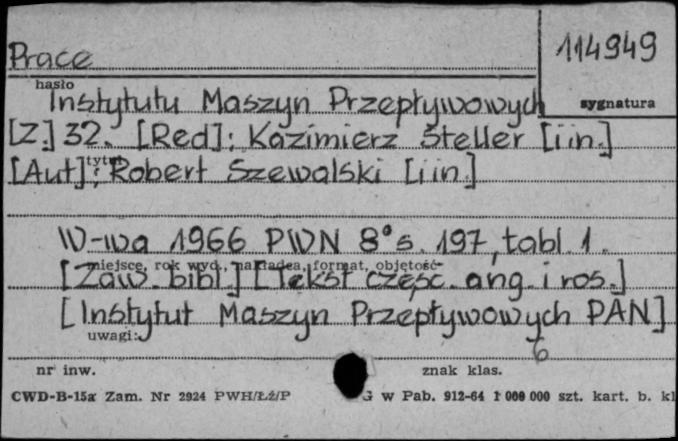 Prace
114949
hasło
Instytutu Maszyn Przepływowych
sygnatura
[Z.] 32. [Red]: Kazimierz Steller [i in.]
tytuł
[Aut]: Robert Szewalski [i in.]
W-wa 1966 PWN 8° s. 197, tabl. 1.
miejsce, rok wyd., nakładca, format, objętość
[Zaw. bibl.] [Tekst częśc. ang. i ros.]
[Instytut Maszyn Przepływowych PAN]
uwagi:
6
nr inw.
znak klas.
CWD-B-15a Zam. Nr 2924 PWH/ŁŻ/P
G w Pab. 912-64 1 000 000 szt. kart. b. kl